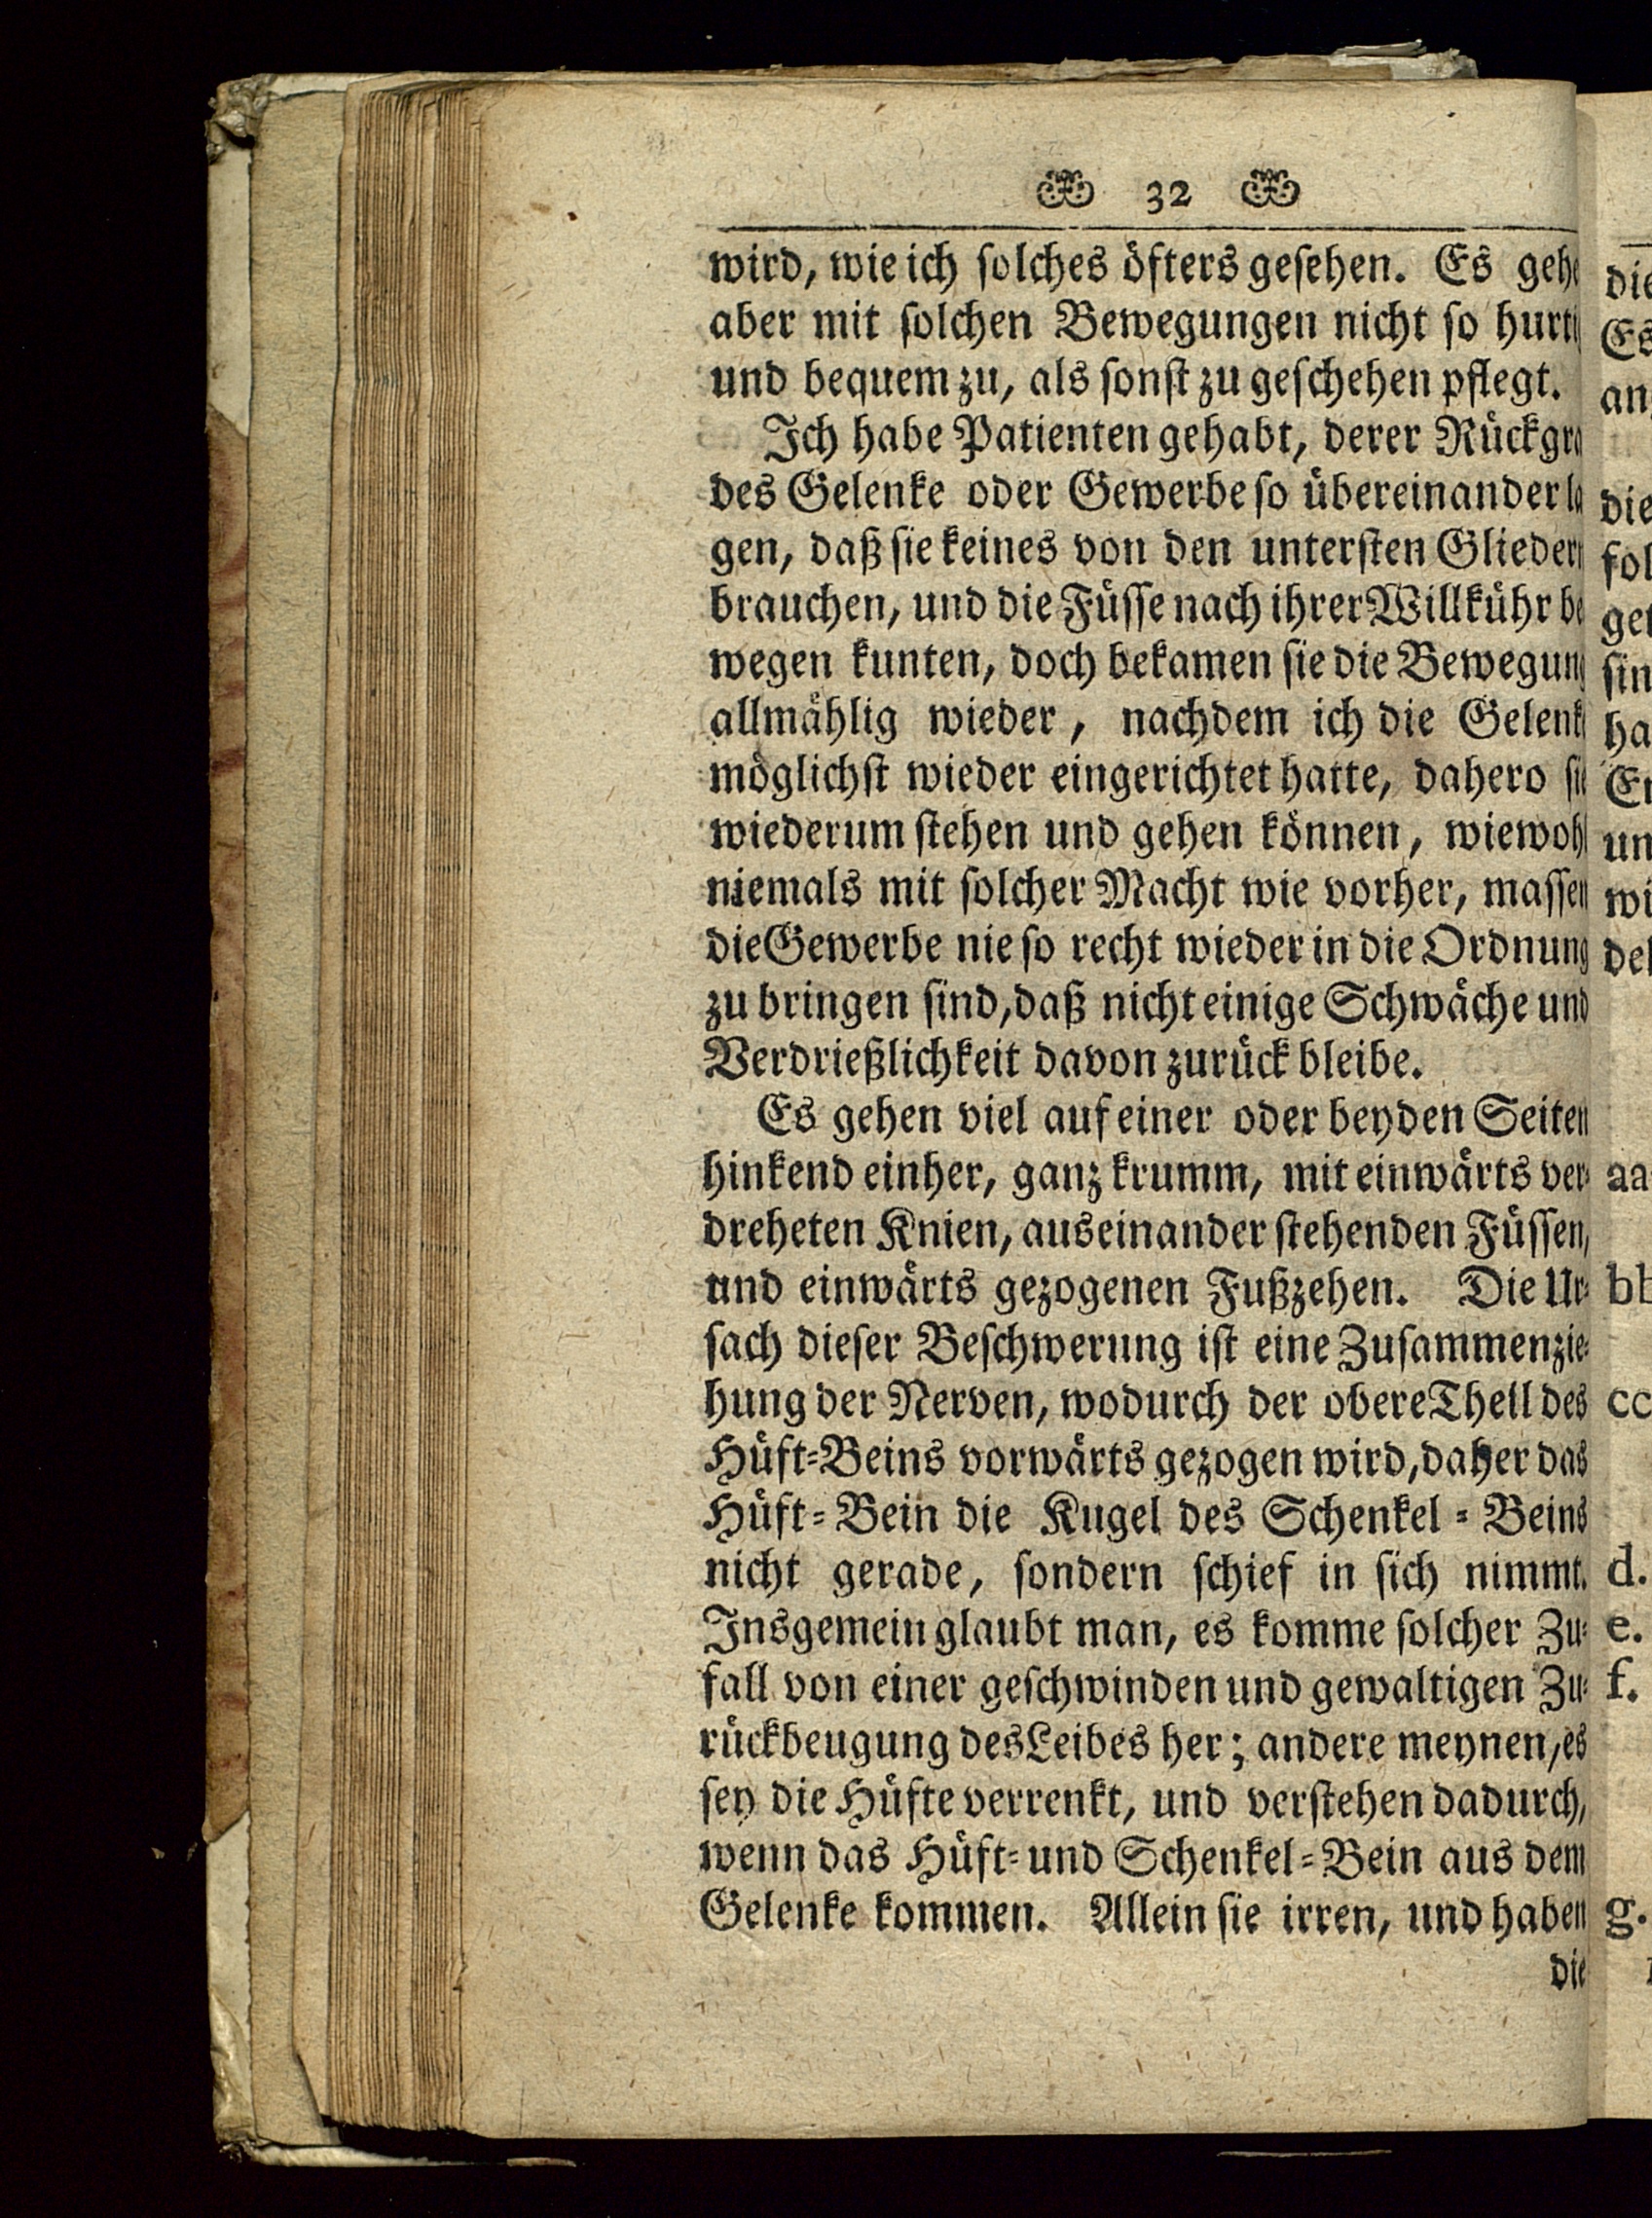 32
wird, wie ich solches öfters gesehen. Es gehe
aber mit solchen Bewegungen nicht so hurti
und bequem zu, als sonst zu geschehen pflegt.
Ich habe Patienten gehabt, derer Rückgra
des Gelenke oder Gewerbe so übereinander la
gen, daß sie keines von den untersten Gliedern
brauchen, und die Füsse nach ihrer Willkühr be
wegen kunten, doch bekamen sie die Bewegung
allmählig wieder, nachdem ich die Gelenke
möglichst wieder eingerichtet hatte, dahero sie
wiederum stehen und gehen können, wiewohl
niemals mit solcher Macht wie vorher, massen
die Gewerbe nie so recht wieder in die Ordnung
zu bringen sind, daß nicht einige Schwäche und
Verdrießlichkeit davon zurück bleibe.
Es gehen viel auf einer oder beyden Seiten
hinkend einher, ganz krumm, mit einwärts ver-
dreheten Knien, auseinander stehenden Füssen,
und einwärts gezogenen Fußzehen. Die Ur-
sach dieser Beschwerung ist eine Zusammenzie-
hung der Nerven, wodurch der obere Theil des
Hüft-Beins vorwärts gezogen wird, daher das
Hüft-Bein die Kugel des Schenkel-Beins
nicht gerade, sondern schief in sich nimmt.
Insgemein glaubt man, es komme solcher Zu-
fall von einer geschwinden und gewaltigen Zu-
rückbeugung des Leibes her; andere meynen, es
sey die Hüfte verrenkt, und verstehen dadurch,
wenn das Hüft- und Schenkel-Bein aus dem
Gelenke kommen. Allein sie irren, und haben
die
die
Es
an
die
fol
sin
ha
un
wi
aa
bb
cc
d.
e.
f.
g.